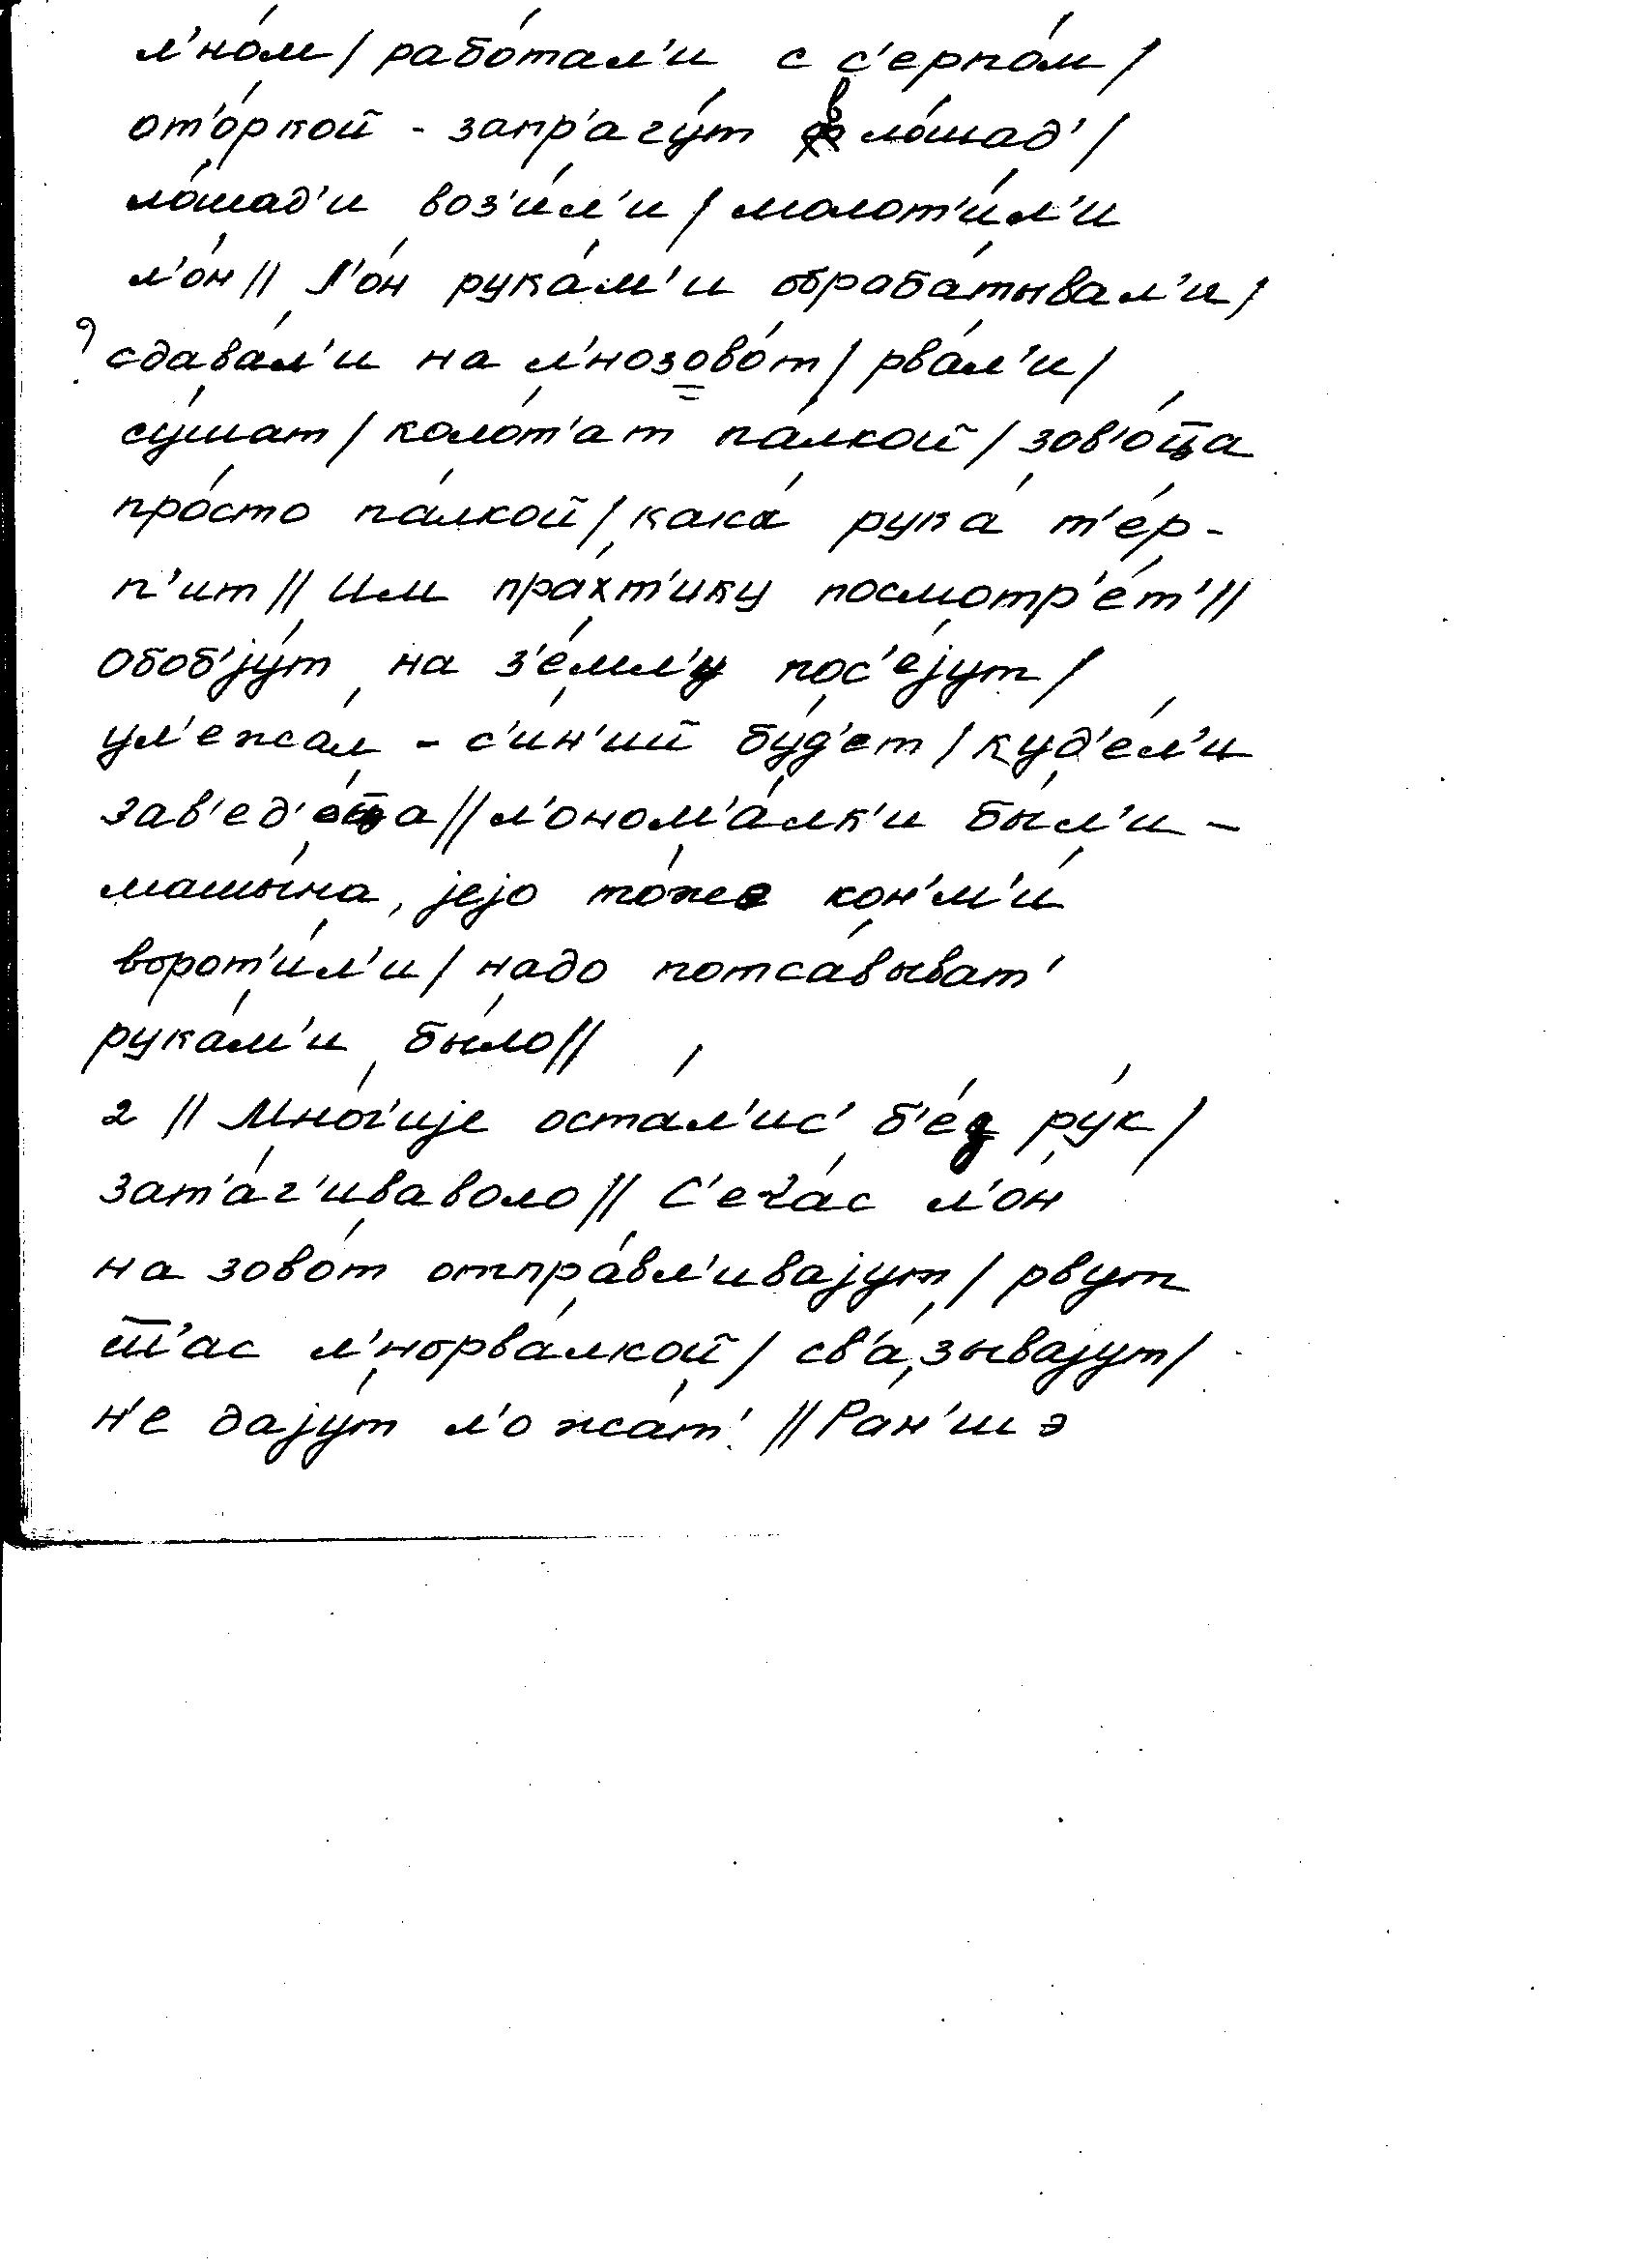 л'но́м / рабо́тал'и с с'ерпо́м /
от'о́ркой - запр'агу́т в ло́шад' /
ло́шад'и воз'и́л'и / молот'и́л'и
л'о́н // Л'о́н рука́м'и обраба́тывал'и /
? сдава́л'и на л'нозово́т / рва́л'и /
су́шат / коло́т'ат па́лкой / зов'о́ц̄а
про́сто па́лкой / кака́ рука́ т'е́р-
п'ит // Им пра́хт'ику посмотр'е́т' //
Обоб'jу́т на з'е́мл'у пос'е́jут /
ул'ежа́л - с'и́н'ий бу́д'ет / куд'е́л'и
зав'ед'е́ц̄а // л'оном'а́лк'и бы́л'и -
машы́на, jejо то́же кон'м'и́
ворот'и́л'и / надо потса́выват'
рука́м'и бы́ло //
2 // Мно́г'иje оста́л'ис' б'е́з ру́к /
зат'а́г'ивavоло // С'еча́с л'о́н
на зово́т отпра́вл'иваjут / рвут
ш̄'ас л'норва́лкой / св'а́зываjут /
н'е даjу́т л'ожа́т' // Ран'шэ